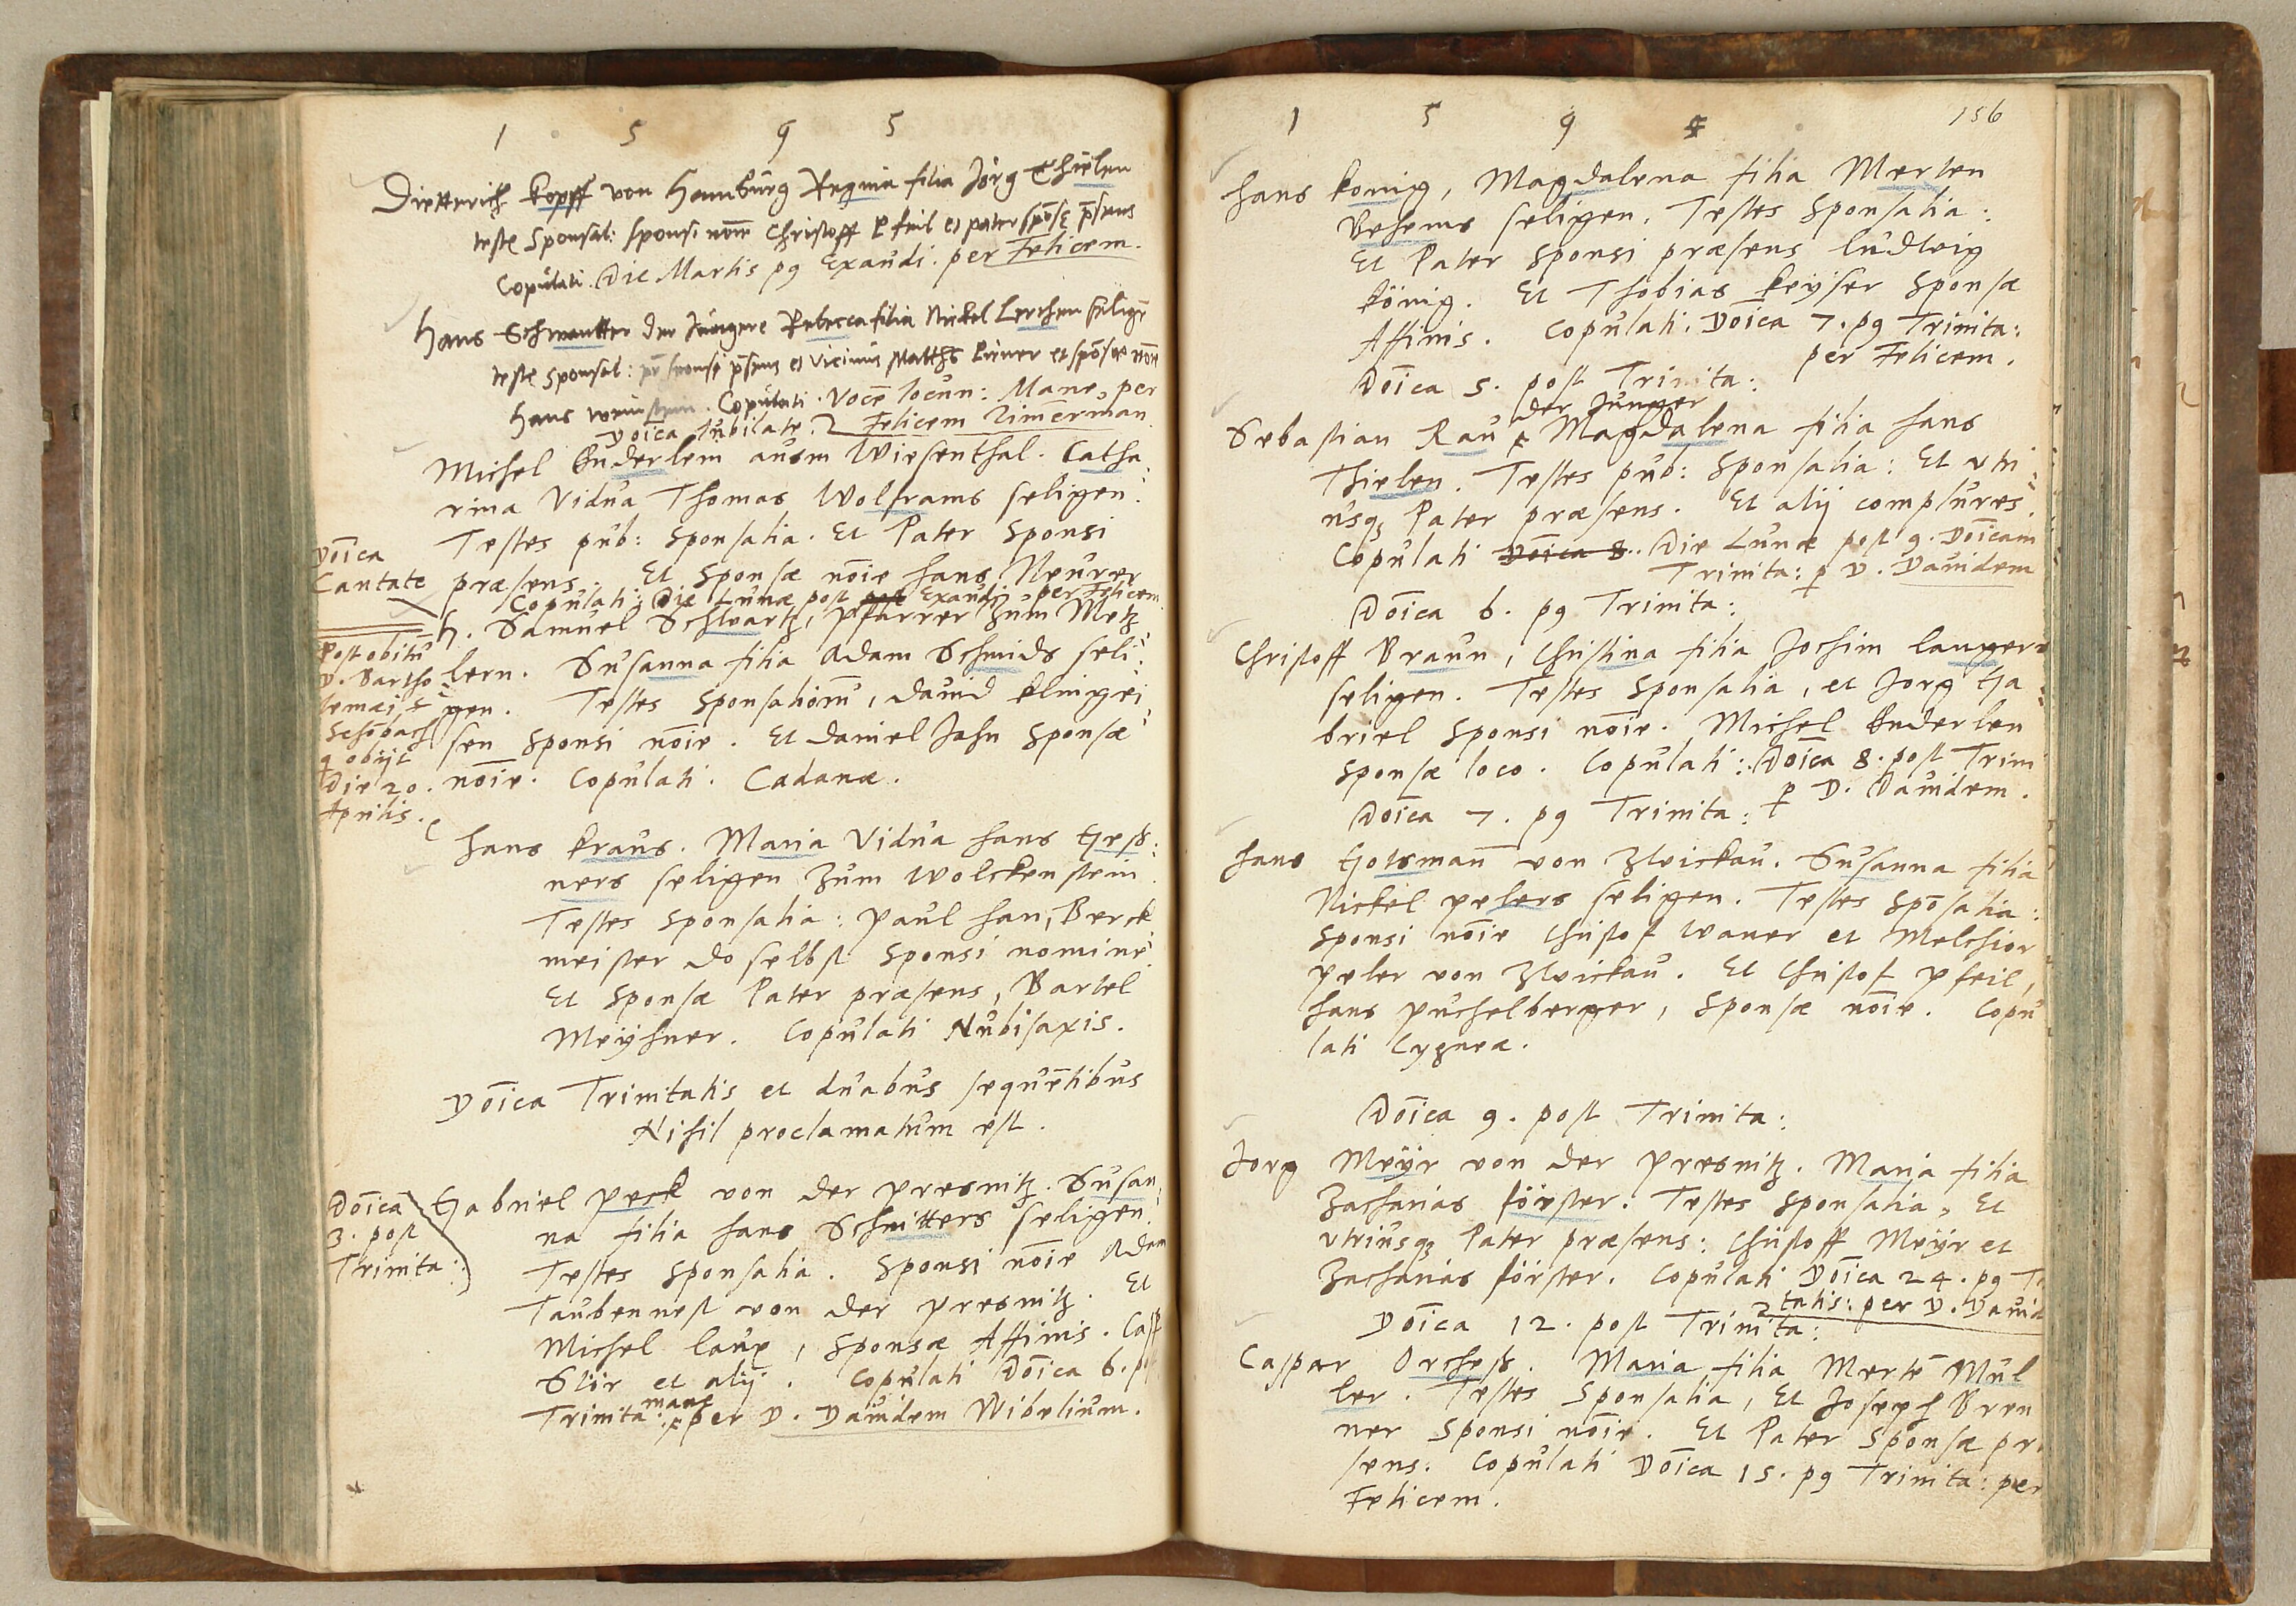 1 5 9 5
Dietterich Kopff von Hamburg Regina filia Jörg Thielen
teste Sponsal: sponsi nom̄e Christoff Pfeil et pater spōsę p̄sens
Copulati. Die Martis pg Exaudi. per Felicem.
Hans Schwentter der Jüngere Rebecca filia Nickel Lerchen seligē
teste sponsal: pr̄ sponsi p̄sens et vicinus Matths et spōsae nom̄e
Hans Weinstein. Copulati. Vocē locun: Mane, per
Doīca Iubilate. Felicem Zim̄erman.
Michel Enderlem ausm Wiesenthal. Catha
rina Vidua Thomas Wolframs seligen.
Testes pub: Sponsalia. Et Pater Sponsi
Doīca
Cantate præsens. Et Sponsæ noīe Hans Neurer
Copulati: Die Lunæ post Exaudi per Felicem.
H. Samuel Schwartz, Pfarrer zum Metz
Post obitū
D. Bartho lern. Susanna filia Adam Schmids seli
lemæi gen. Testes Sponsaliorū, David Klingei
Schōbach sen Sponsi noīe. Et Daniel Jahn Sponsæ
q obijt
Die 20. noīe. Copulati. Cadanæ.
Aprilis.
Hans Kraus. Maria Vidua Hans Gess
ners seligen zum Wolckenstein.
Testes Sponsalia: Paul Han, Berck
meister do selbst Sponsi nomine.
Et Sponsæ Pater præsens, Bartel
Meyhner. Copulati Nubisaxis.
Doīca Trinitatis et duabus sequētibus
Nihil proclamatum est.
Doīca Gabriel Peck von der Presnitz. Susan
3. post na filia Hans Schnitters seligen.
Trinita: Testes Sponsalia. Sponsi noīe Adam
Taubennest von der Presnitz. Et
Michel Laux, Sponsæ Affinis. Casp
Stör et alij. Copulati Doīca 6. p
mane
Trinita: per D. Davidem Wibelium.
1 5 9 4 156
Hans König, Magdalena filia Merten
Behems seligen. Testes Sponsalia:
Et Pater Sponsi præsens Ludwig
König. Et Thobias Keyser Sponsæ
Affinis. Copulati. Doīca 7. pg Trinita:
per Felicem.
Doīca 5. post Trinita:
der Junger
Sebastian Rau Magdalena filia Hans
Thielen. Testes pub: Sponsalia: Et vtri
usq; Pater præsens. Et alij complures.
Copulati Doīca 8. Die Lunæ post 9. Doīcam
Trinita: p D. Davidem
Doīca 6. pg Trinita:
Christoff Braun, Christina filia Jochim Langers
seligen. Testes Sponsalia, et Jorg Ga
briel Sponsi noīe. Michel Enderlen
Sponsæ loco. Copulati: Doīca 8. post Trini
p D. Davidem.
Doīca 7. pg Trinita:
Hans Gotsman̄ von Zwickau. Susanna filia
Nickel Pelers seligen. Testes Spōsalia:
Sponsi noīe Christof Waner et Melchior
Peler von Zwickau. Et Christof Pfeil,
Hans Puchelberger, Sponsæ noīe. Copu
lati Cygneæ.
Doīca 9. post Trinita:
Jorg Meÿr von der Presnitz. Maria filia
Zacharias Förster. Testes Sponsalia, Et
vtriusq; Pater præsens: Christoff Meÿr et
Zacharias Förster. Copulati Doīca 24. pg Tri
tatis: per D. David
Doīca 12. post Trinita:
Caspar Orchess. Maria filia Mertē Mul
ler. Testes Sponsalia, Et Joseph Bren
ner Sponsi noīe. Et Pater Sponsæ præ
sens. Copulati Doīca 15. pg Trinita: per
Felicem.